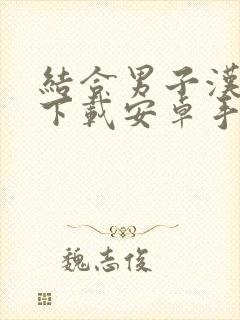 結合男子漢
下載安卓手
魏志俊